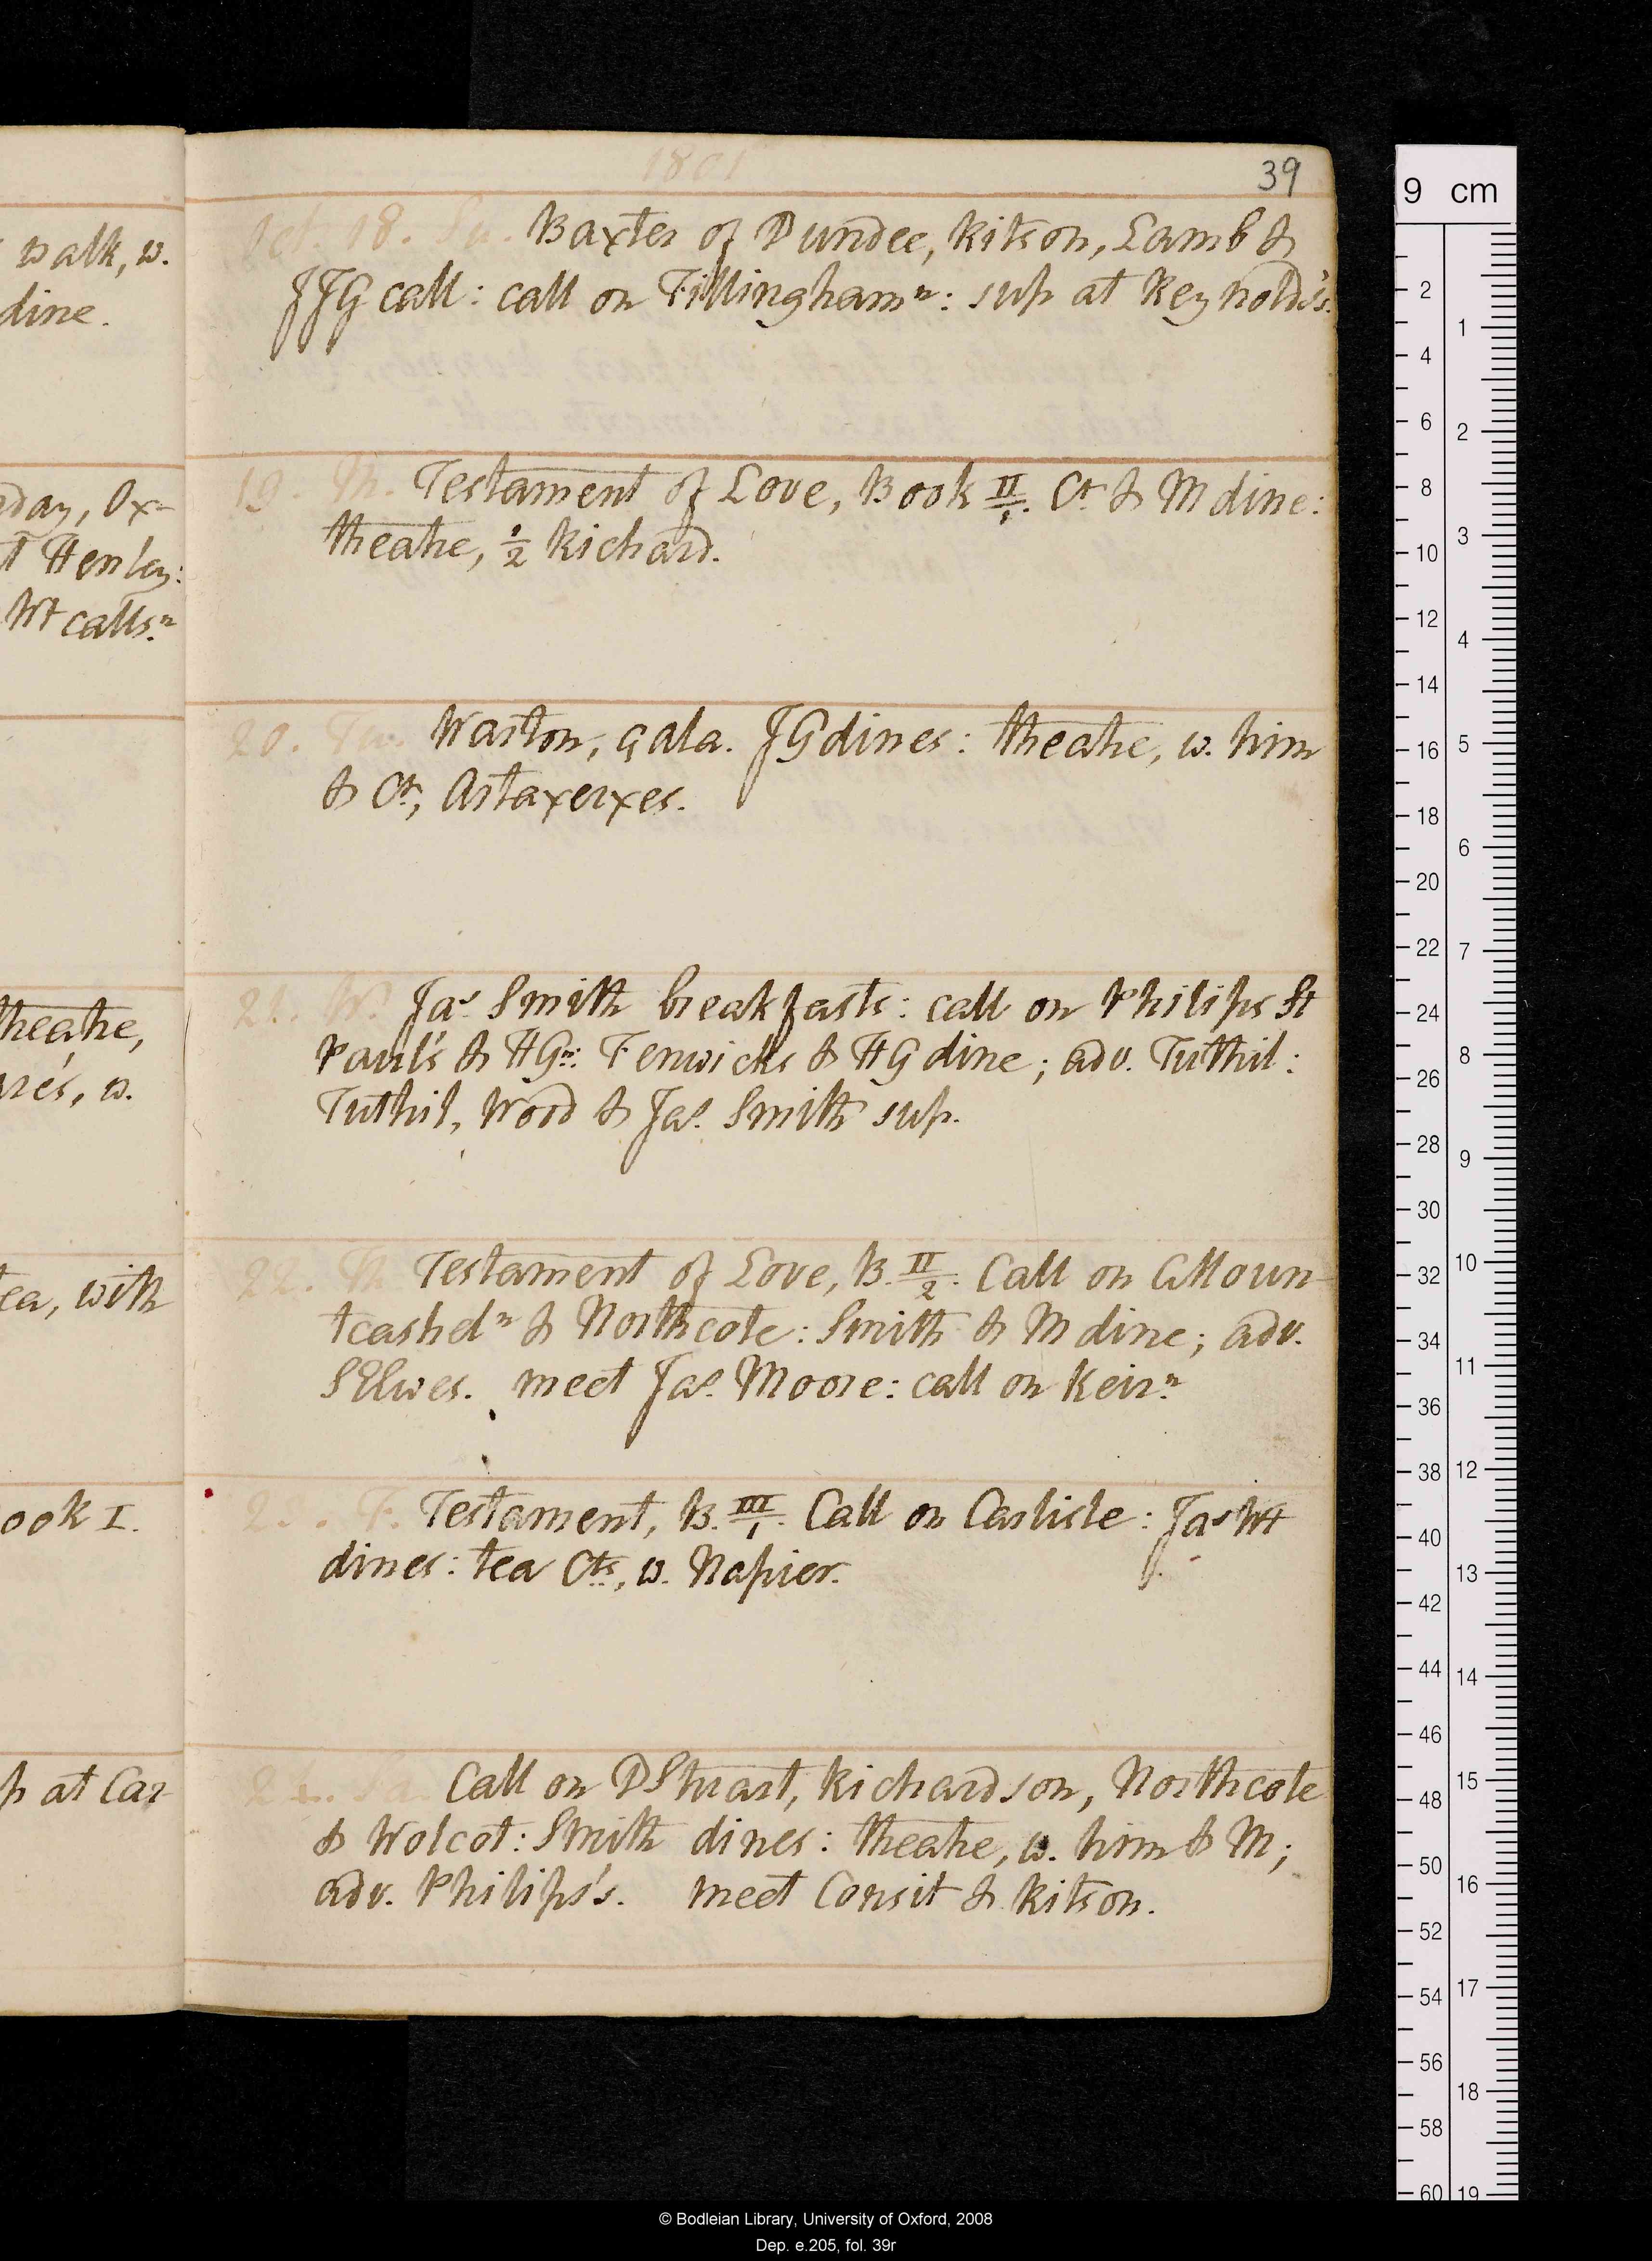 1801
39
walk, w.
dine.
Oct. 18. Su. Baxter of Dundee, Ritson, Lamb &
JJG call: call on Fillinghamⁿ: sup at Reynolds's.
day, Ox-
Henley:
Wt callsⁿ.
19. M. Testament of Love, Book II/1. Ct & M dine:
theatre, ½ Richard.
20. Tu. Warton, çala. JG dines: theatre, w. him
& Ct, Artaxerxes.
theatre,
w.
21. W. Jas Smith breakfasts: call on Philips St
Paul's & HGⁿ: Fenwicks & HG dine; adv. Tuthil:
Tuthil, Wood & Jas. Smith sup.
tea, with
22. Th. Testament of Love, B. II/2. Call on CMoun-
tcashelⁿ & Northcote: Smith & M dine; adv.
SElwes. meet Jas. Moore: call on Keirⁿ.
ook I.
2 . F. Testament, B. III/1. Call on Carlisle: Jas Wt
dines: tea Cts, w. Napier.
p at Car
24. Sa. Call on DStuart, Richardson, Northcote
& Wolcot: Smith dines: theatre, w. him & M;
adv. Philips's. meet Consit & Ritson.
9 cm
2 4 6 8 10 12 14 16 18 20 22 24 26 28 30 32 34 36 38 40 42 44 46 48 50 52 54 56 58 60
1 2 3 4 5 6 7 8 9 10 11 12 13 14 15 16 17 18 19
© Bodleian Library, University of Oxford, 2008
Dep. e.205, fol. 39r